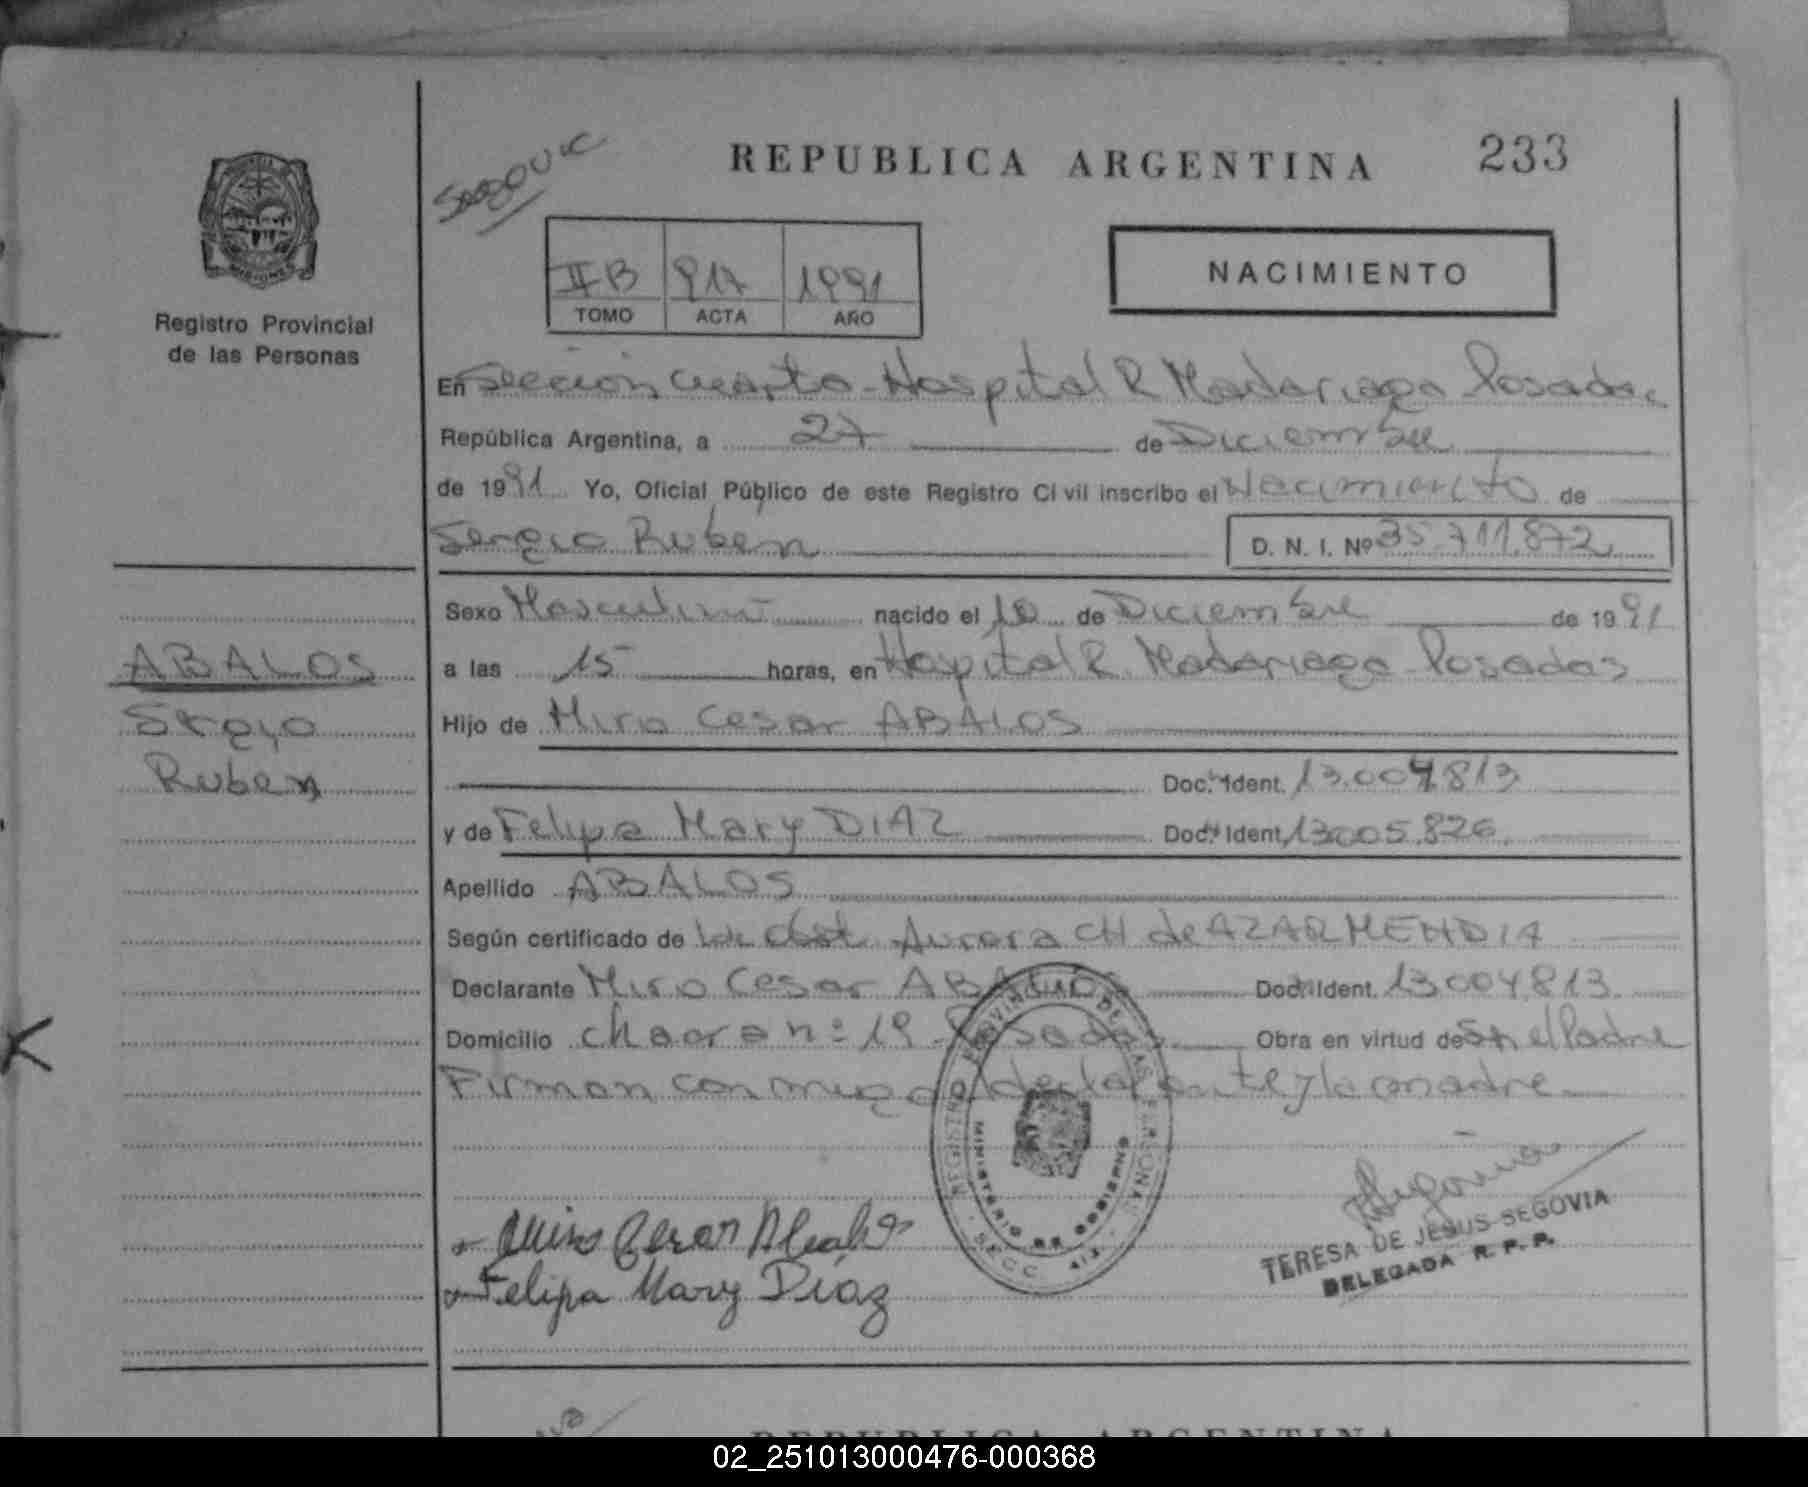 REPUBLICA ARGENTINA 233
NACIMIENTO
II B 917 1991
TOMO ACTA AÑO
Registro Provincial
de las Personas
En Sección cuarta - Hospital R Madariaga Posadas
República Argentina, a 27 de Diciembre
de 1991 Yo, Oficial Público de este Registro Civil inscribo el Nacimiento de
Sergio Rubén D. N. I. Nº 35.711.872
Sexo Masculino nacido el 10 de Diciembre de 1991
a las 15 horas, en Hospital R. Madariaga Posadas
Hijo de Miro Cesar ABALOS
Doc. Ident. 13.004.813
y de Felipa Mary DIAZ Doc. Ident. 13005.826
Apellido ABALOS
Según certificado de Aurora CH de AZARMENDIA
Declarante Miro Cesar ABALOS Doc. Ident. 13004.813
Domicilio chacra nº 19 Posadas Obra en virtud de Ser el Padre
Firman conmigo el declarante y la madre
ABALOS
Sergio
Ruben
REGISTRO PROVINCIAL DE LAS PERSONAS
MINISTERIO DE GOBIERNO
SECC. 4ta
Miro Cesar Abalos
Felipa Mary Díaz
Segovia
TERESA DE JESUS SEGOVIA
DELEGADA R. P. P.
REPUBLICA ARGENTINA
02_251013000476-000368